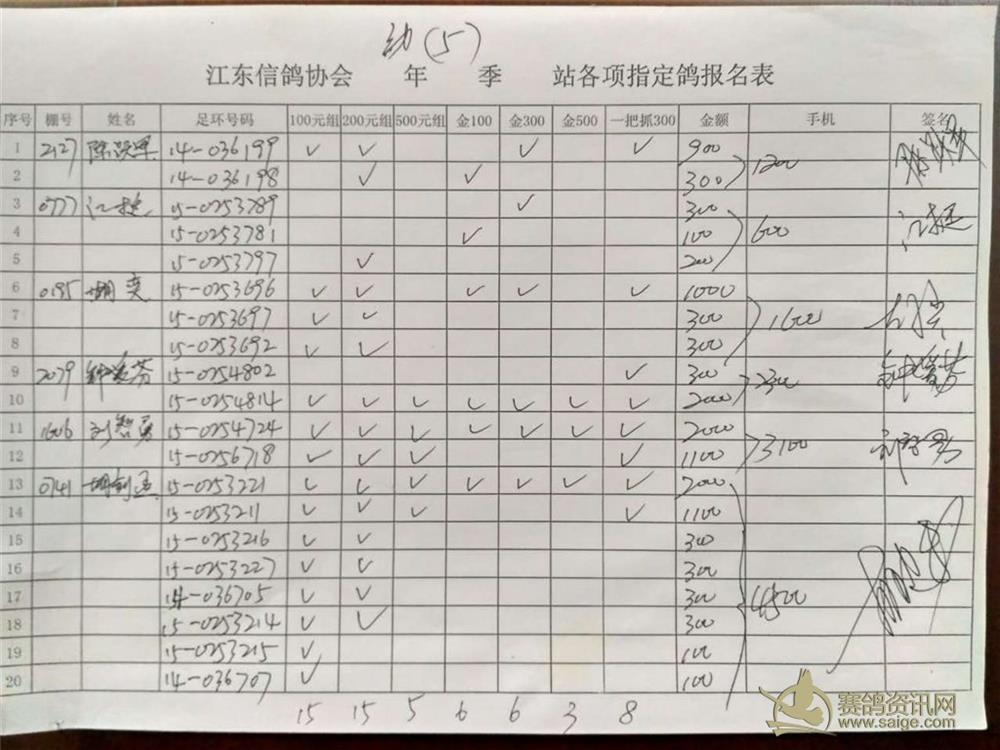 幼(5)
江东信鸽协会 年 季 站各项指定鸽报名表
序号 棚号 姓名 足环号码 100元组 200元组 500元组 金100 金300 金500 一把抓300 金额 手机 签名
1 2127 14-036199 ✓ ✓ ✓ ✓ 900
2 14-036198 ✓ ✓ 300 1200
3 0777 江挺 15-0253789 ✓ 300 江挺
4 15-0253781 ✓ 100 600
5 15-0253797 ✓ 200
6 0195 胡奕 15-0253696 ✓ ✓ ✓ ✓ ✓ 1000
7 15-0253697 ✓ ✓ 300 1600
8 15-0253692 ✓ ✓ 300
9 2079 钟爱芬 15-0254802 ✓ 300 2300 钟爱芬
10 15-0254814 ✓ ✓ ✓ ✓ ✓ ✓ ✓ 2000
11 1606 刘智勇 15-0254724 ✓ ✓ ✓ ✓ ✓ ✓ ✓ 2000
12 15-0256718 ✓ ✓ ✓ ✓ 1100 3100
13 0741 15-0253221 ✓ ✓ ✓ ✓ ✓ ✓ ✓ 2000
14 15-0253211 ✓ ✓ ✓ ✓ 1100
15 15-0253216 ✓ ✓ 300
16 15-0253227 ✓ ✓ 300
17 14-036705 ✓ ✓ 300 4500
18 15-0253214 ✓ ✓ 300
19 15-0253215 ✓ 100
20 14-036707 ✓ 100
15 15 5 6 6 3 8
赛鸽资讯网
www.saige.com